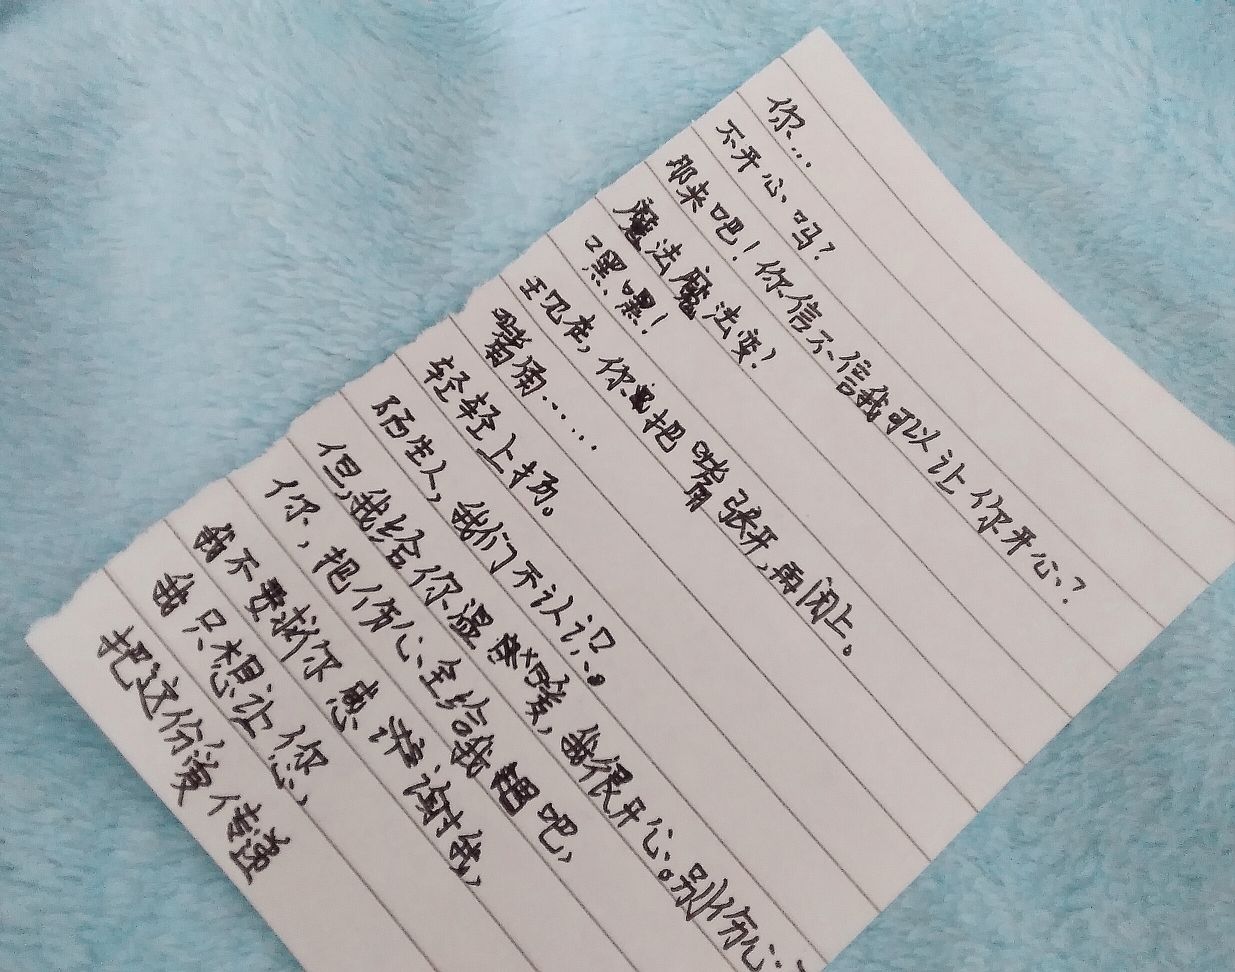 你...
不开心吗?
那来吧!你信不信我可以让你开心?
魔法魔法变!
嘿嘿!
现在,你把嘴张开,再闭上。
嘴角......
轻轻上扬。
陌生人,我们不认识。
但,我给你温暖,我很开心。别伤心、
你,把伤心全给我吧,
我不要求你感谢我,
我只想让您,
把这份爱传递